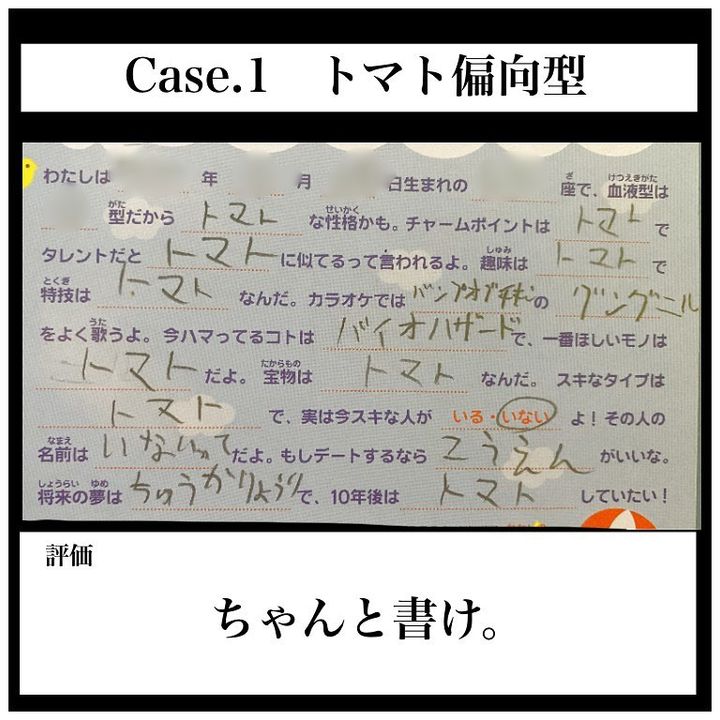 Case.1　トマト偏向型
わたしは 年 月 日生まれの 座で、血液型は
型だから トマト な性格かも。チャームポイントは トマト で
タレントだと トマト に似てるって言われるよ。趣味は トマト で
特技は トマト なんだ。カラオケでは バンプオブチキン の グングニル
をよく歌うよ。今ハマってるコトは バイオハザード で、一番ほしいモノは
トマト だよ。宝物は トマト なんだ。スキなタイプは
トマト で、実は今スキな人が いる・いない よ！その人の
名前は いないって だよ。もしデートするなら こうえん がいいな。
将来の夢は ちゅうかりょうり で、10年後は トマト していたい！
評価
ちゃんと書け。